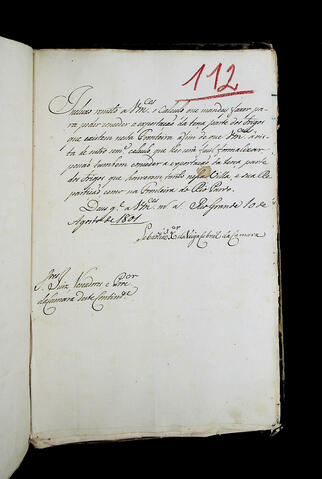 112
Incluzo remeto a Vm.ces o Calculo que mandei fazer pa
ra poder conceder a exportação da terça parte dos trigos
que existem nesta Fronteira afim de que Vm.ces a vis
ta de outro sem.e calculo, que lhes será facil formalizar
possão tambem conceder a exportação da terça parte
dos trigos, que houverem tanto nessa Villa, e sua Re
partição como na Fronteira do Rio Pardo.
Deus g.e a Vm.ces m.s a.s Rio Grande 10 de
Agosto de 1801.
Sebastião X.er da Veiga Cabral da Camara
S.res Juiz, Vereadores e Proc.or
da Camara deste Contin.te